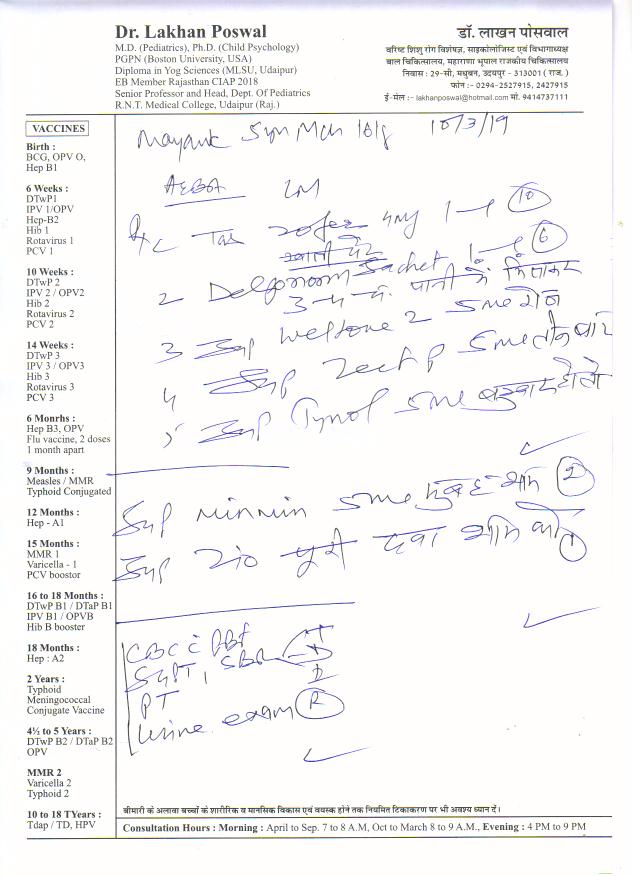 Dr. Lakhan Poswal
M.D. (Pediatrics), Ph.D. (Child Psychology)
PGPN (Boston University, USA)
Diploma in Yog Sciences (MLSU, Udaipur)
EB Member Rajasthan CIAP 2018
Senior Professor and Head, Dept. Of Pediatrics
R.N.T. Medical College, Udaipur (Raj.)
डॉ. लाखन पोसवाल
वरिष्ट शिशु रोग विशेषज्ञ, साइकोलोजिस्ट एवं विभागाध्यक्ष
बाल चिकित्सालय, महाराणा भूपाल राजकीय चिकित्सालय
निवास : 29-सी, मधुबन, उदयपुर - 313001 ( राज. )
फोन :- 0294-2527915, 2427915
ई-मेल :- lakhanposwal@hotmail.com मो. 9414737111
VACCINES
Birth :
BCG, OPV O,
Hep B1
6 Weeks :
DTwP1
IPV 1/OPV
Hep-B2
Hib 1
Rotavirus 1
PCV 1
10 Weeks :
DTwP 2
IPV 2 / OPV2
Hib 2
Rotavirus 2
PCV 2
14 Weeks :
DTwP 3
IPV 3 / OPV3
Hib 3
Rotavirus 3
PCV 3
6 Monrhs :
Hep B3, OPV
Flu vaccine, 2 doses
1 month apart
9 Months :
Measles / MMR
Typhoid Conjugated
12 Months :
Hep - A1
15 Months :
MMR 1
Varicella - 1
PCV boostor
16 to 18 Months :
DTwP B1 / DTaP B1
IPV B1 / OPVB
Hib B booster
18 Months :
Hep : A2
2 Years :
Typhoid
Meningococcal
Conjugate Vaccine
4½ to 5 Years :
DTwP B2 / DTaP B2
OPV
MMR 2
Varicella 2
Typhoid 2
10 to 18 TYears :
Tdap / TD, HPV
Mayank 5yr 10/3/19
Tab 4mg 1 10
खाली पेट
2 Sachet 1 6
3-4 पानी में मिलाकर
3 Syp 2 5ml रोज
4 Syp 5ml तीन बार
5 Syp 5ml बुखार हो तो
Syp 5ml सुबह शाम 2
Syp पूरी दवा शाम को 1
CBC c PBF
SGPT,
PT
Urine exam R
बीमारी के अलावा बच्चों के शारीरिक व मानसिक विकास एवं वयस्क होने तक नियमित टिकाकरण पर भी अवश्य ध्यान दें।
Consultation Hours : Morning : April to Sep. 7 to 8 A.M, Oct to March 8 to 9 A.M., Evening : 4 PM to 9 PM